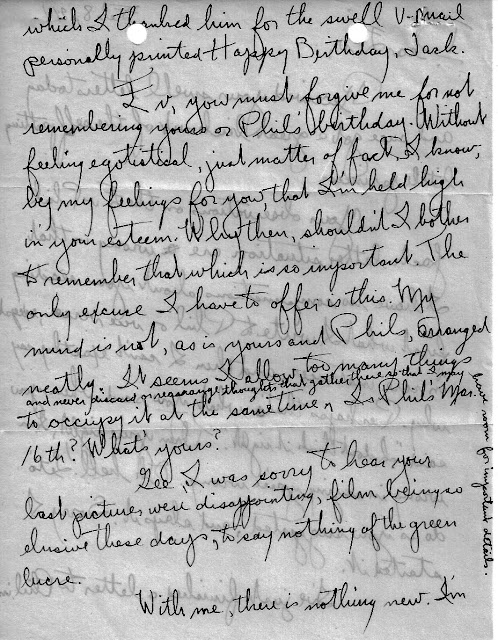 which I thanked him for the swell V-mail
personally printed Happy Birthday, Jack.
Ev, you must forgive me for not
remembering yours or Phil's birthday. Without
feeling egotistical, just matter of fact, I know,
by my feelings for you, that I'm held high
in your esteem. Why then, shouldn't I bother
to remember that which is so important. The
only excuse I have to offer is this. My
mind is not, as is yours and Phils, arranged
neatly. It seems I allow too many things
and never discard or rearrange thoughts that gather there so that I may
have room for important details.
to occupy it at the same time, Is Phil's Mar.
16th? What's yours?
Gee, I was sorry to hear your
last pictures were disappointing, film being so
elusive these days, to say nothing of the green
lucre.
With me, there is nothing new. I'm